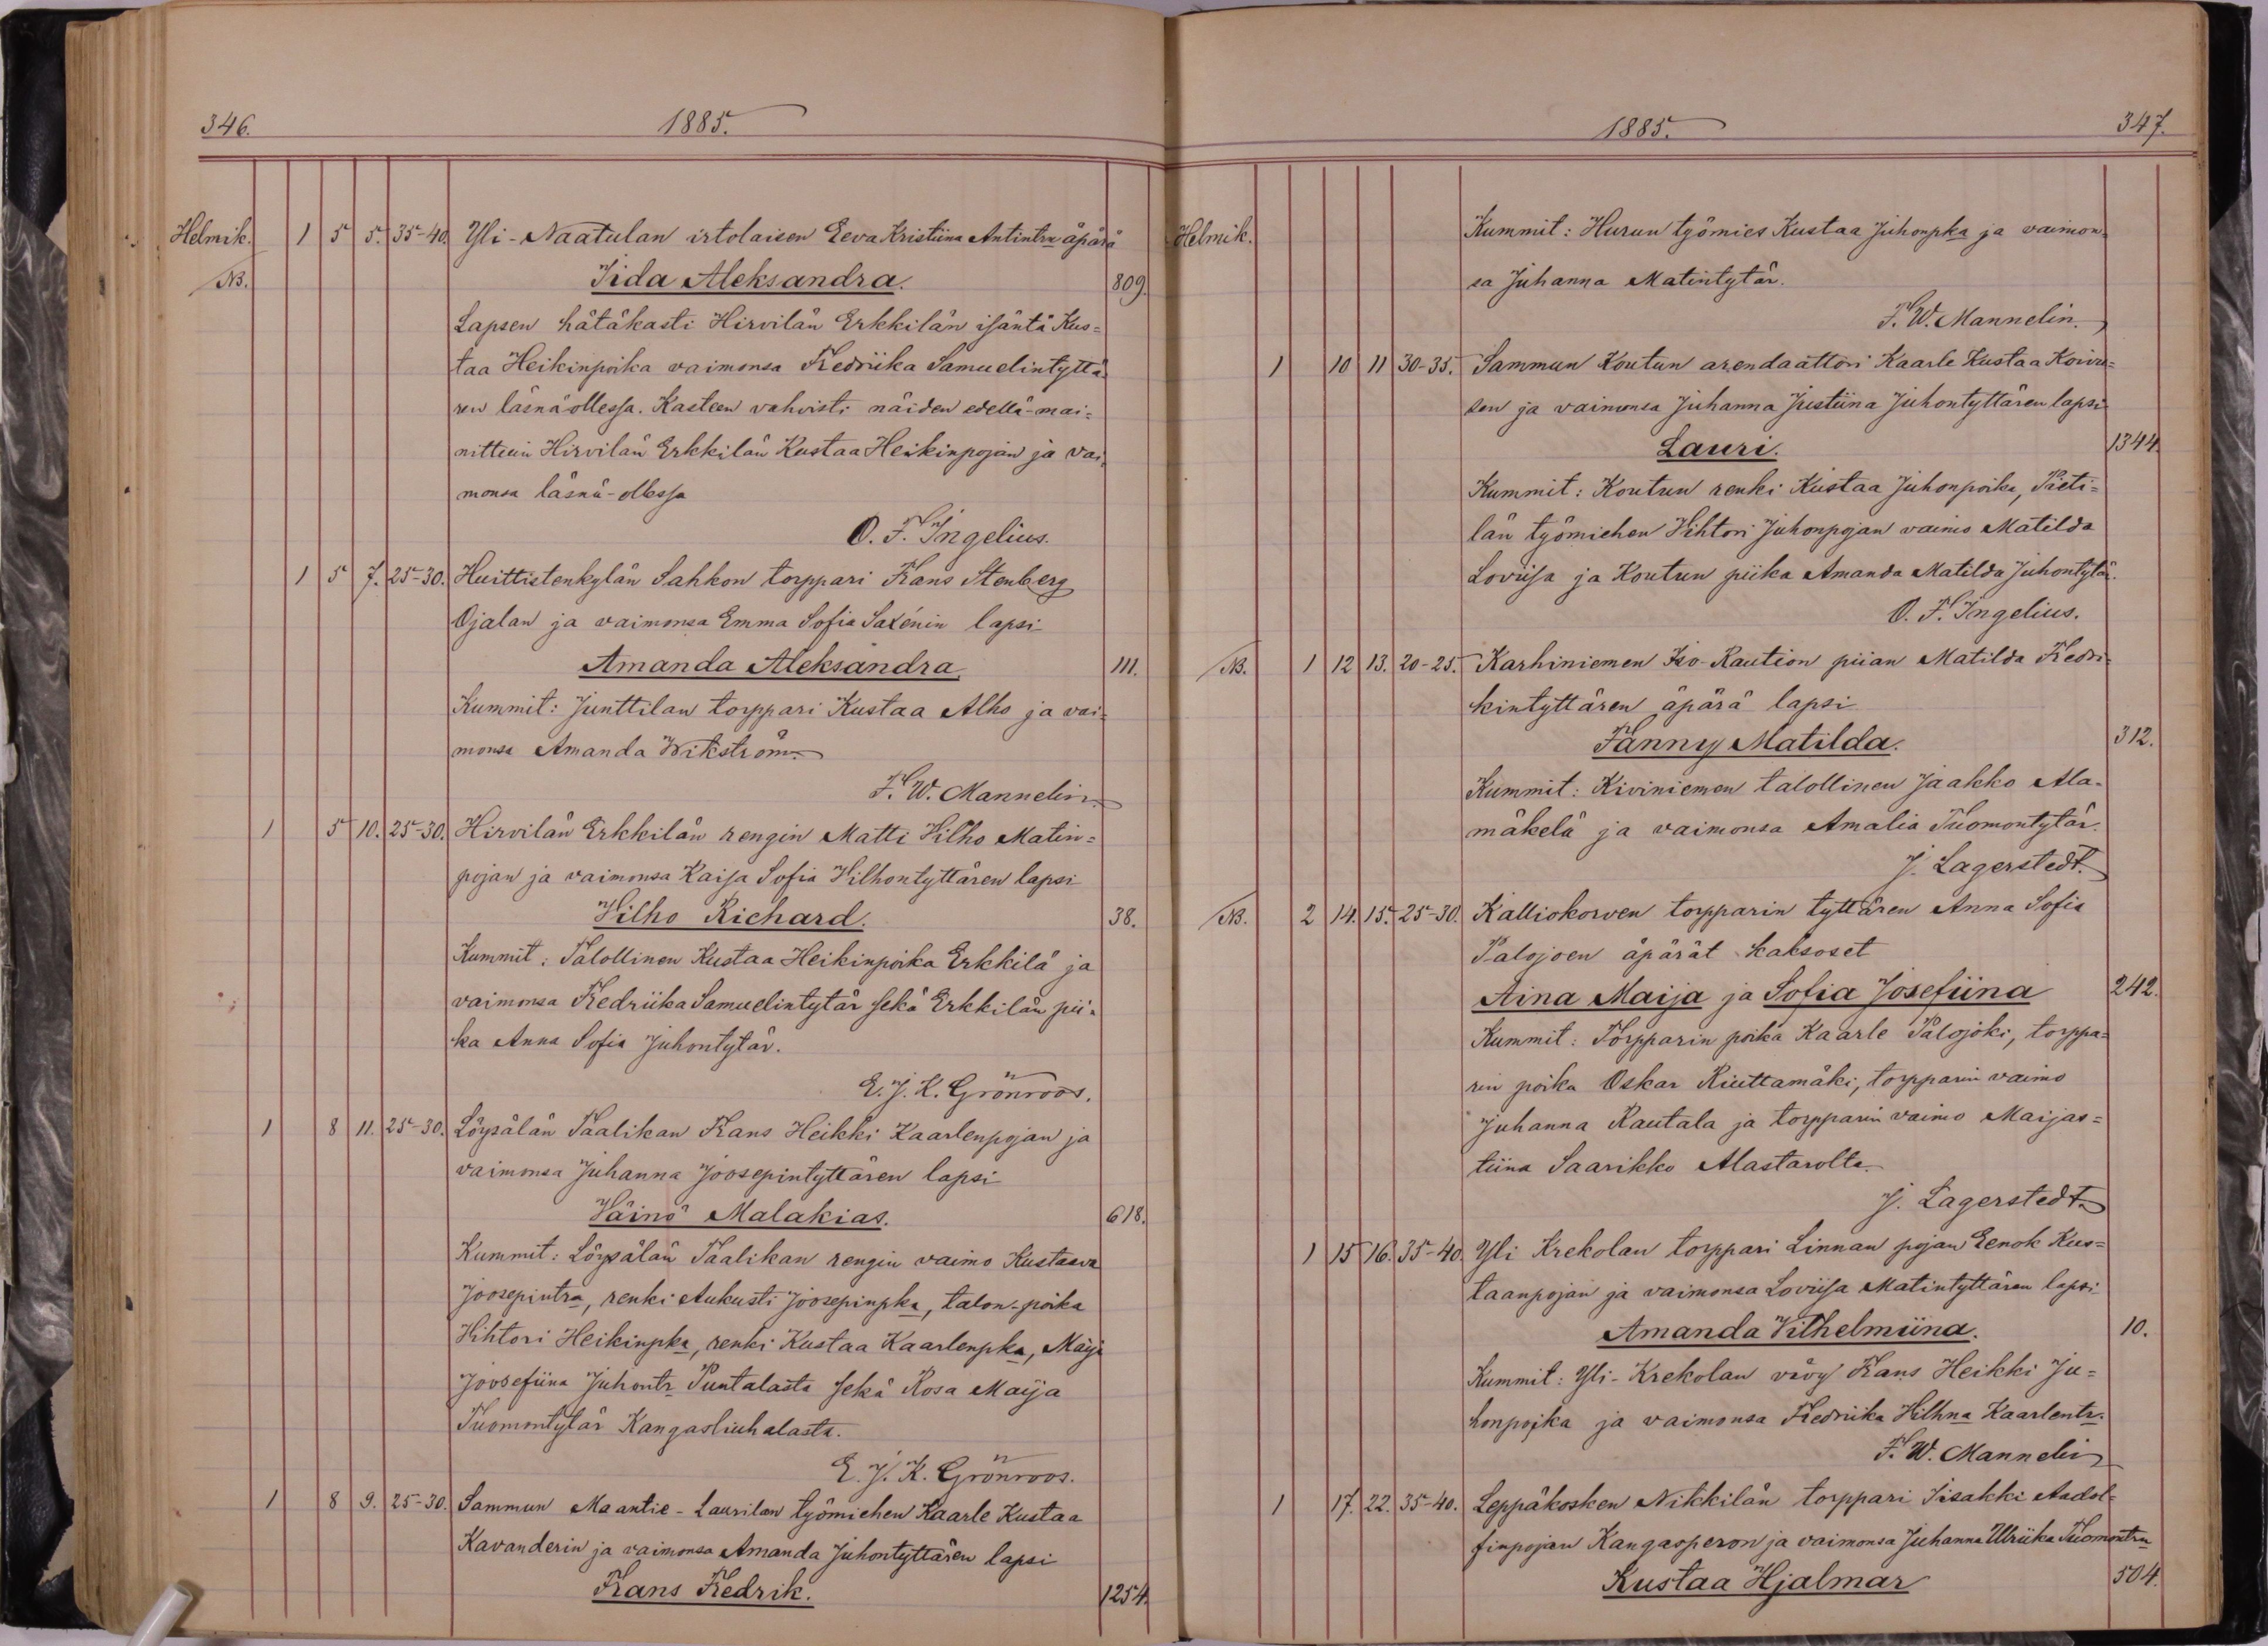 346. 1885.
Helmik. 1 5 5. 35-40. Yli-Naatulan irtolaisen Eeva Kristiina Antintrn äpärä
NB. Iida Aleksandra. 809.
Lapsen hätäkasti Hirvilän Erkkilän isäntä Kus=
taa Heikinpoika vaimonsa Fredriika Samuelintyttä=
ren läsnäollessa. Kasteen vahvisti näiden edellä-mai=
nittuin Hirvilän Erkkilän Kustaa Heikinpojan ja vai=
monsa läsnä-ollessa
O. F. Ingelius.
1 5 7. 25-30. Huittistenkylän Sahkon torppari Frans Stenberg
Ojalan ja vaimonsa Emma Sofia Saxénin lapsi
Amanda Aleksandra. 111.
Kummit: Junttilan torppari Kustaa Alho ja vai=
monsa Amanda Wikström.
F. W. Mannelin.
1 5 10. 25-30. Hirvilän Erkkilän rengin Matti Vilho Matin=
pojan ja vaimonsa Kaisa Sofia Vilhontyttären lapsi
Vilho Richard. 38.
Kummit: Talollinen Kustaa Heikinpoika Erkkilä ja
vaimonsa Fredriika Samuelintytär sekä Erkkilän pii=
ka Anna Sofia Juhontytär.
E. J. K. Grönroos.
1 8 11. 25-30. Löysälän Taalikan Frans Heikki Kaarlenpojan ja
vaimonsa Juhanna Joosepintyttären lapsi
Väinö Malakias. 618.
Kummit: Löysälän Taalikan rengin vaimo Kustaava
Joosepintra, renki Aukusti Joosepinpka, talon-poika
Vihtori Heikinpka, renki Kustaa Kaarlenpka, Maija
Joosefiina Juhontr Puntalasta sekä Rosa Maija
Tuomontytär Kangasliuhalasta.
E. J. K. Grönroos.
1 8 9. 25-30. Sammun Maantie-Laurilan työmiehen Kaarle Kustaa
Kavanderin ja vaimonsa Amanda Juhontyttären lapsi
Frans Fredrik. 1254.
1885. 347.
Helmik. Kummit: Hurun työmies Kustaa Juhonpka ja vaimon=
sa Juhanna Matintytär.
F. W. Mannelin.
1 10 11 30-35. Sammun Koutun arendaattori Kaarle Kustaa Koivu=
sen ja vaimonsa Juhanna Justiina Juhontyttären lapsi
Lauri. 1344.
Kummit: Koutun renki Kustaa Juhonpoika, Pieti=
län työmiehen Vihtori Juhonpojan vaimo Matilda
Loviisa ja Koutun piika Amanda Matilda Juhontytär.
O. F. Ingelius.
NB. 1 12 13. 20-25. Karhiniemen Iso-Raution piian Matilda Fredri=
kintyttären äpärä lapsi
Fanny Matilda. 312.
Kummit: Kiviniemen talollinen Jaakko Ala=
mäkelä ja vaimonsa Amalia Tuomontytär.
J. Lagerstedt.
NB. 2 14. 15. 25-30. Kalliokorven torpparin tyttären Anna Sofia
Palojoen äpärät kaksoset
Aina Maija ja Sofia Josefiina 242.
Kummit: Torpparin poika Kaarle Palojoki, torppa=
rin poika Oskar Riuttamäki, torpparin vaimo
Juhanna Rautala ja torpparin vaimo Maijas=
tiina Saarikko Alastarolta.
J. Lagerstedt.
1 15 16. 35-40. Yli Krekolan torppari Linnan pojan Eenok Kus=
taanpojan ja vaimonsa Loviisa Matintyttären lapsi
Amanda Vilhelmiina. 10.
Kummit: Yli-Krekolan vävy Frans Heikki Ju=
honpoika ja vaimonsa Fredriika Vilhna Kaarlentr.
F. W. Mannelin
1 17. 22. 35-40. Leppäkosken Nikkilän torppari Iisakki Aadol=
finpojan Kangasperon ja vaimonsa Juhanna Ulriika Tuomontrn
Kustaa Hjalmar 504.